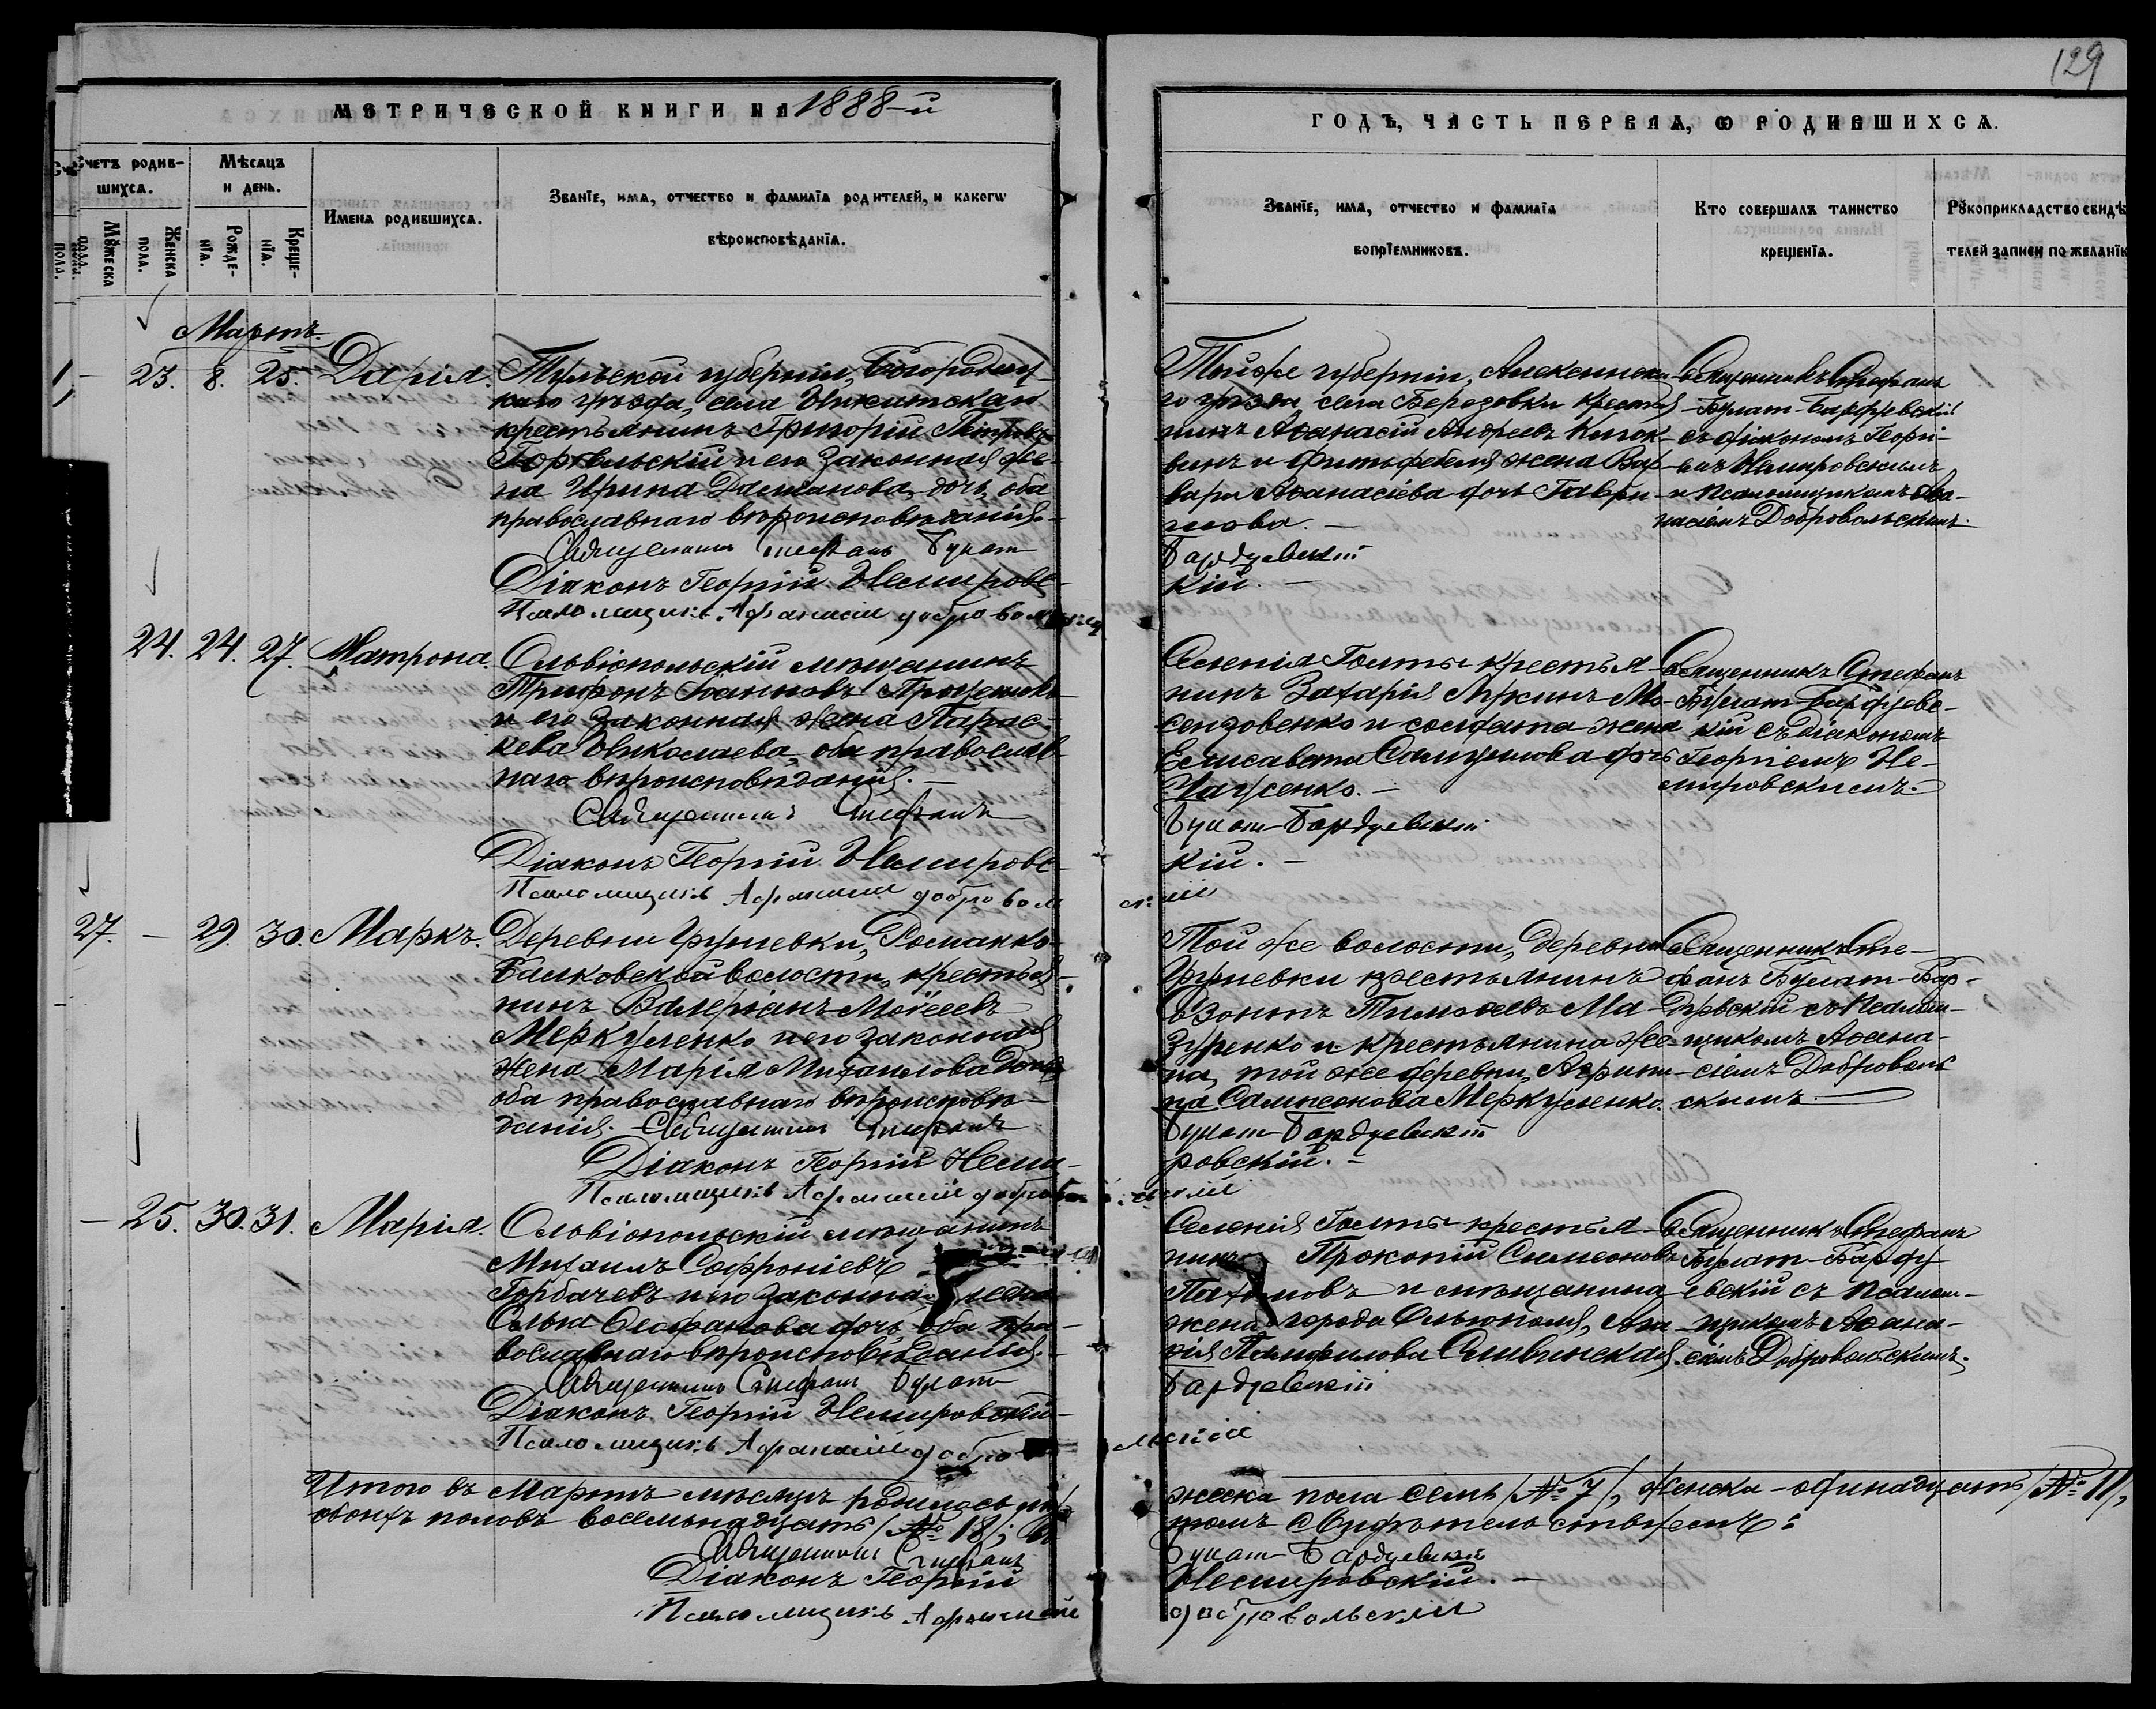 129
МЕТРИЧЕСКОЙ КНИГИ НА 1888-й
ГОДЪ, ЧАСТЬ ПЕРВАЯ, Ѡ РОДИВШИХСЯ.
Счетъ родив-
шихся.
Мꙋжеска
пола.
Женска
пола.
Мѣсяцъ
и день.
Рожде-
нія.
Креще-
нія.
Имена родившихся.
Званїе, имя, отчество и фамилїя родителей, и какогѡ
вѣроисповѣданїя.
Званїе, имя, отчество и фамилїя
воспрїемниковъ.
Кто совершалъ таинство
крещенїя.
Рꙋкоприкладство свидѣ
телей записи по желанїю
Мартъ.
— 23. 8. 25. Дарія.
Тульской губерніи, Богородиц-
каго уѣзда, села Никитскаго
крестьянинъ Григорій Петровъ
и его законная же-
на Ирина дочь, оба
православнаго вѣроисповѣданія.
Священникъ Стефанъ Булат
Діаконъ Георгій Немировс-
Псаломщикъ Афанасій Добровольскій
Той же губерніи, Алексинска-
го уѣзда села Березовки крестья-
нинъ Аѳанасій Андреевъ
и фельдфебеля жена Вар-
вара Аѳанасіева дочь Гаври-
лова. —
Бардуевскій
кій. —
Священникъ Стефанъ
Булат-Бардуевскій
съ діакономъ Георгі-
емъ Немировскимъ
и псаломщикомъ Аѳа-
насіемъ Добровольскимъ.
24. 24. 27. Матрона.
Ольвіопольскій мѣщанинъ
Трифонъ Іоанновъ
и его законная жена Парас-
кева Николаева, оба православ-
наго вѣроисповѣданія. —
Священникъ Стефанъ
Діаконъ Георгій Немировс-
Псаломщикъ Афанасій Доброволь
Селенія Голты крестья-
нинъ Захарія
и солдата жена
Елисавета Самуилова дочь
Булат-Бардуевскій
кій. —
Священникъ Стефанъ
Булат-Бардуевс-
кій съ діакономъ
Георгіемъ Не-
мировскимъ.
27. — 29. 30. Маркъ.
Деревни Грушевки, Романко-
Балковской волости, крестья-
нинъ Валеріанъ Моѵсеевъ
Меркуленко и его законная
жена Марія Михаилова дочь,
оба православнаго вѣроисповѣ-
данія. — Священникъ Стефанъ
Діаконъ Георгій Неми-
Псаломщикъ Афанасій Добро
Той же волости, деревни
Грушевки крестьянинъ
Изотъ Тимоѳеевъ Ма-
зуренко и крестьянина же-
на, той же деревни,
Сампсонова Меркуленко.
Булат-Бардуевскій
ровскій. —
Священникъ Сте-
фанъ Булат-Бар-
дуевскій съ псалом-
щикомъ Аѳана-
сіемъ Доброволь-
скимъ
— 25. 30. 31. Марія.
Ольвіопольскій мѣщанинъ
Михаилъ Софроніевъ
Горбачевъ и его законная жена
Ольга Стефанова дочь, оба пра-
вославнаго вѣроисповѣданія.
Священникъ Стефанъ Булат
Діаконъ Георгій Немировскій —
Псаломщикъ Афанасій Добро
Селенія Голты крестья-
нинъ Прокопій Симеоновъ
Пахомовъ и мѣщанина
жена города Ольвіополя,
Памфилова Сливинская.
Бардуевскій
Священникъ Стефанъ
Булат-Барду-
евскій съ псалом-
щикомъ Аѳана-
сіемъ Добровольскимъ.
Итого въ Мартѣ мѣсяцѣ родилось
обоихъ половъ восемьнадцать /№ 18/; въ
Священникъ Стефанъ
Діаконъ Георгій
Псаломщикъ Афанасій
жеска пола семь /№ 7/, женска — одинадцать /№ 11/,
свидѣтельствуемъ:
Булат-Бардуевскій
Немировскій. —
Добровольскій